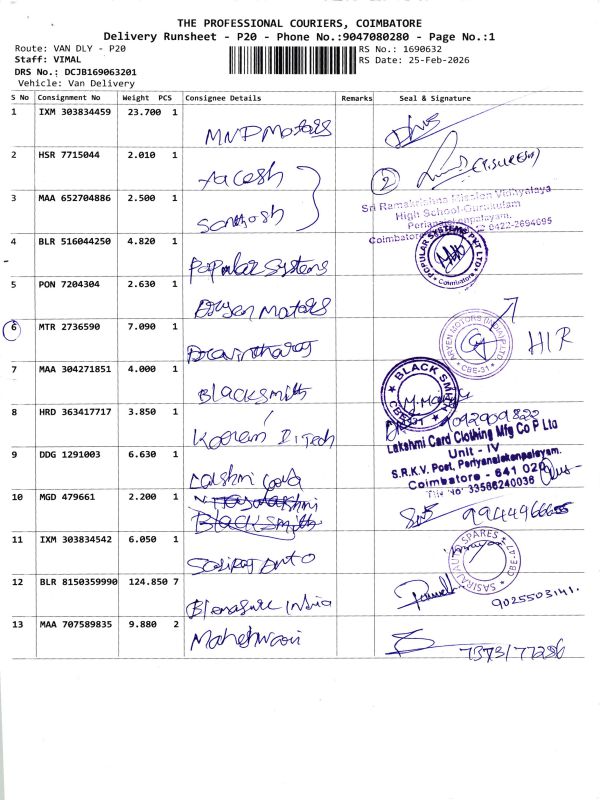 THE PROFESSIONAL COURIERS, COIMBATORE
Delivery Runsheet - P20 - Phone No.:9047080280 - Page No.:1
Route: VAN DLY - P20
RS No.: 1690632
Staff: VIMAL
RS Date: 25-Feb-2026
DRS No.: DCJB169063201
Vehicle: Van Delivery
S No Consignment No Weight PCS Consignee Details Remarks Seal & Signature
1 IXM 303834459 23.700 1 MNP Motors
2 HSR 7715044 2.010 1
(T.SURESH)
2
3 MAA 652704886 2.500 1 Santhosh
Sri Ramakrishna Mission Vidhyalaya
High School-Gurukulam
Periyanaickenpalayam,
Coimbatore
0422-2694695
4 BLR 516044250 4.820 1 Popular Systems
POPULAR SYSTEMS PVT LTD
Coimbatore
5 PON 7204304 2.630 1 Motors
6 MTR 2736590 7.090 1
ARVEN MOTORS (INDIA) P LTD
CBE-31
HIR
7 MAA 304271851 4.000 1 Blacksmith
BLACK SMITH
CBE-31
8 HRD 363417717 3.850 1
Lakshmi Card Clothing Mfg Co P Ltd
Unit - IV
9 DDG 1291003 6.630 1 Lakshmi Card
S.R.K.V. Post, Periyanaickenpalayam.
Coimbatore - 641 020
TIN No 33586240036
10 MGD 479661 2.200 1
Blacksmith
11 IXM 303834542 6.050 1 Sasiraj Auto
SASIRAJ AUTO SPARES
CBE-47
12 BLR 8150359990 124.850 7 India
9025503141.
13 MAA 707589835 9.880 2 Maheshwari